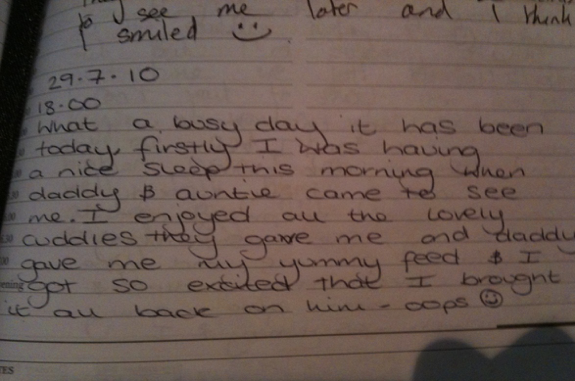 I see me later and I think
smiled
29.7.10
18.00
What a busy day it has been
today, firstly I was having
a nice sleep this morning when
daddy & auntie came to see
me. I enjoyed all the lovely
cuddles they gave me and daddy
gave me my yummy feed & I
got so excited that I brought
it all back on him - oops ☺